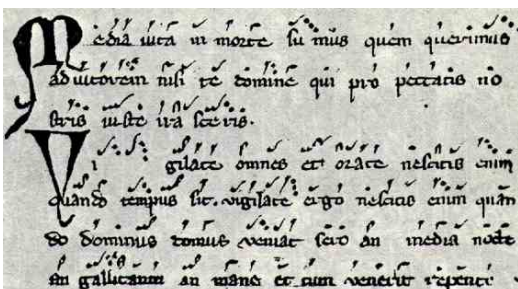 Media vita in morte sumus quem querimus
adiutorem nisi te domine qui pro peccatis no
stris iuste irasceris.
Vigilate omnes et orate nescitis enim
quando tempus sit. vigilate ergo nescitis enim quan
do dominus domus veniat sero an media nocte
an galli cantu an mane et cum venerit repente